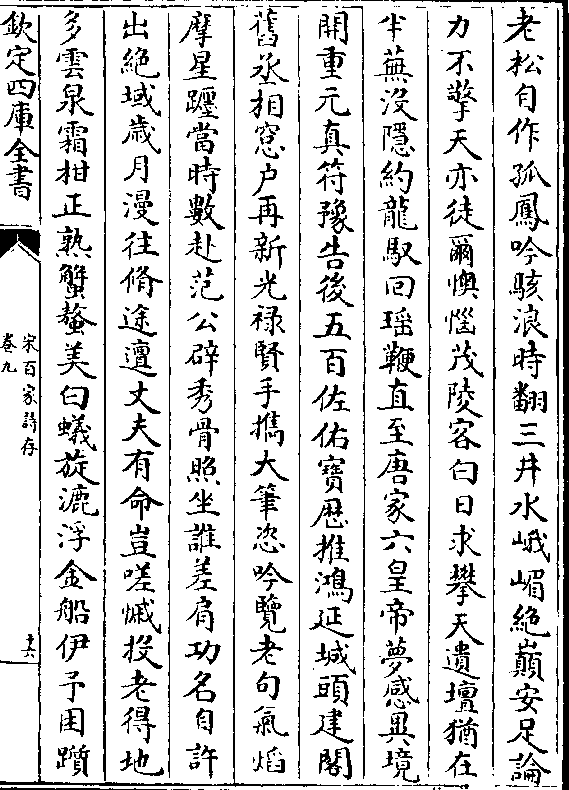 老松自作孤鳳吟駭浪時翻三井水峨嵋絶巔安足論
力不擎天亦徒爾懊惱茂陵客白日求攀天遺壇猶在
半蕪没隱約龍馭回瑶鞭直至唐家六皇帝夢感異境
開重元真符豫告後五百佐佑寶厯推鴻延城頭建閣
舊丞相窓户再新光禄賢手擕大筆恣吟覽老句氣熖
摩星躔當時數赴范公辟秀骨照坐誰差肩功名自許
出絶域歳月漫往脩途邅丈夫有命豈嗟慽投老得地
多雲泉霜柑正熟蟹螯美白蟻旋漉浮金船伊予困躓
欽定四庫全書
宋百家詩存
卷九
十六